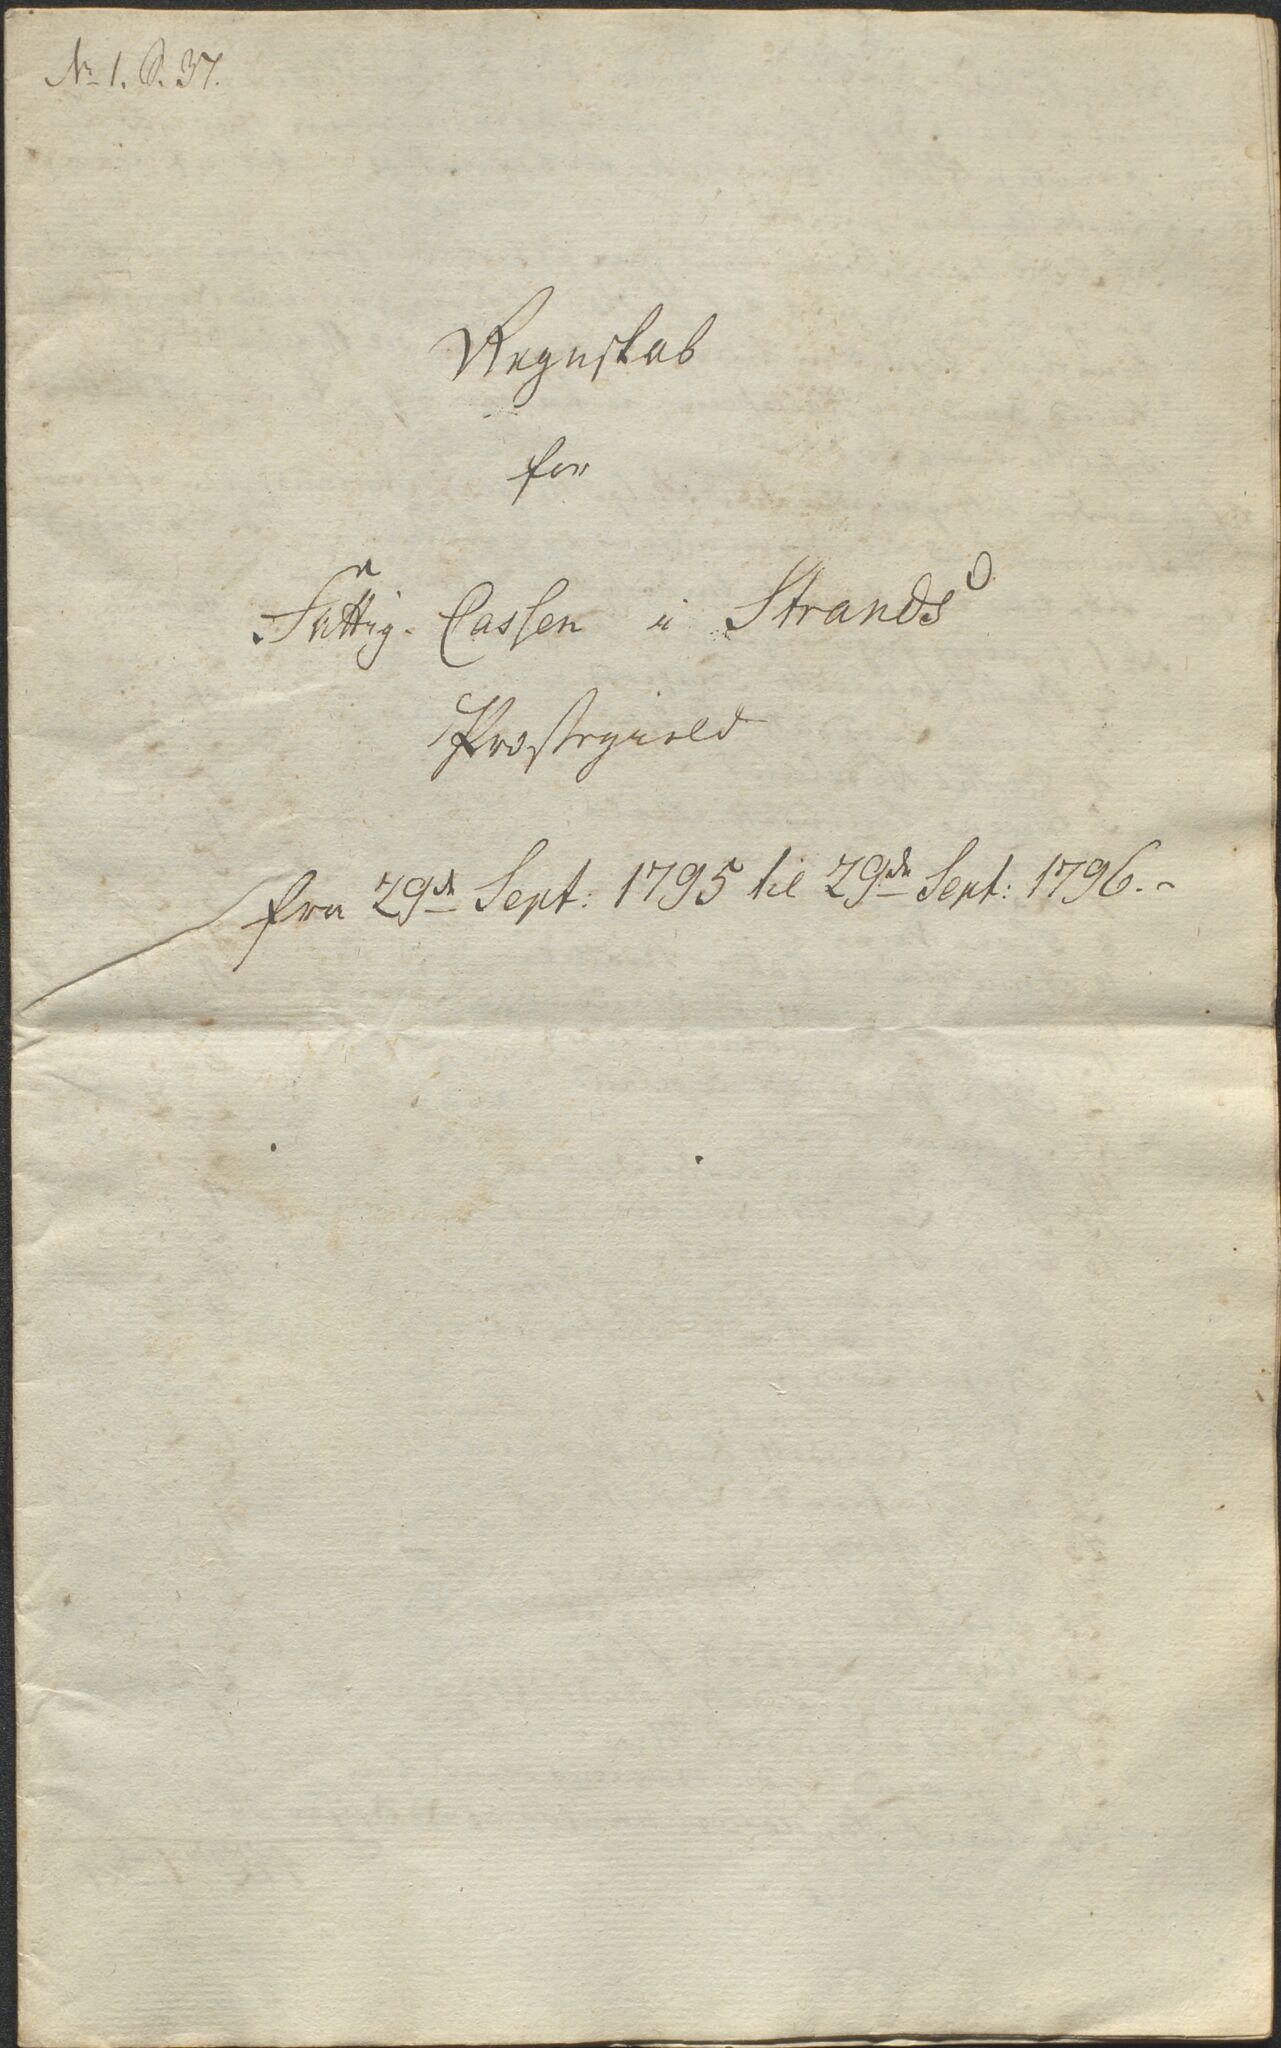 No 1. P. 37.
Regnskab
for
Fattig-Cassen i Strands
Præstegield
fra 29de Sept: 1795 til 29de Sept: 1796.-